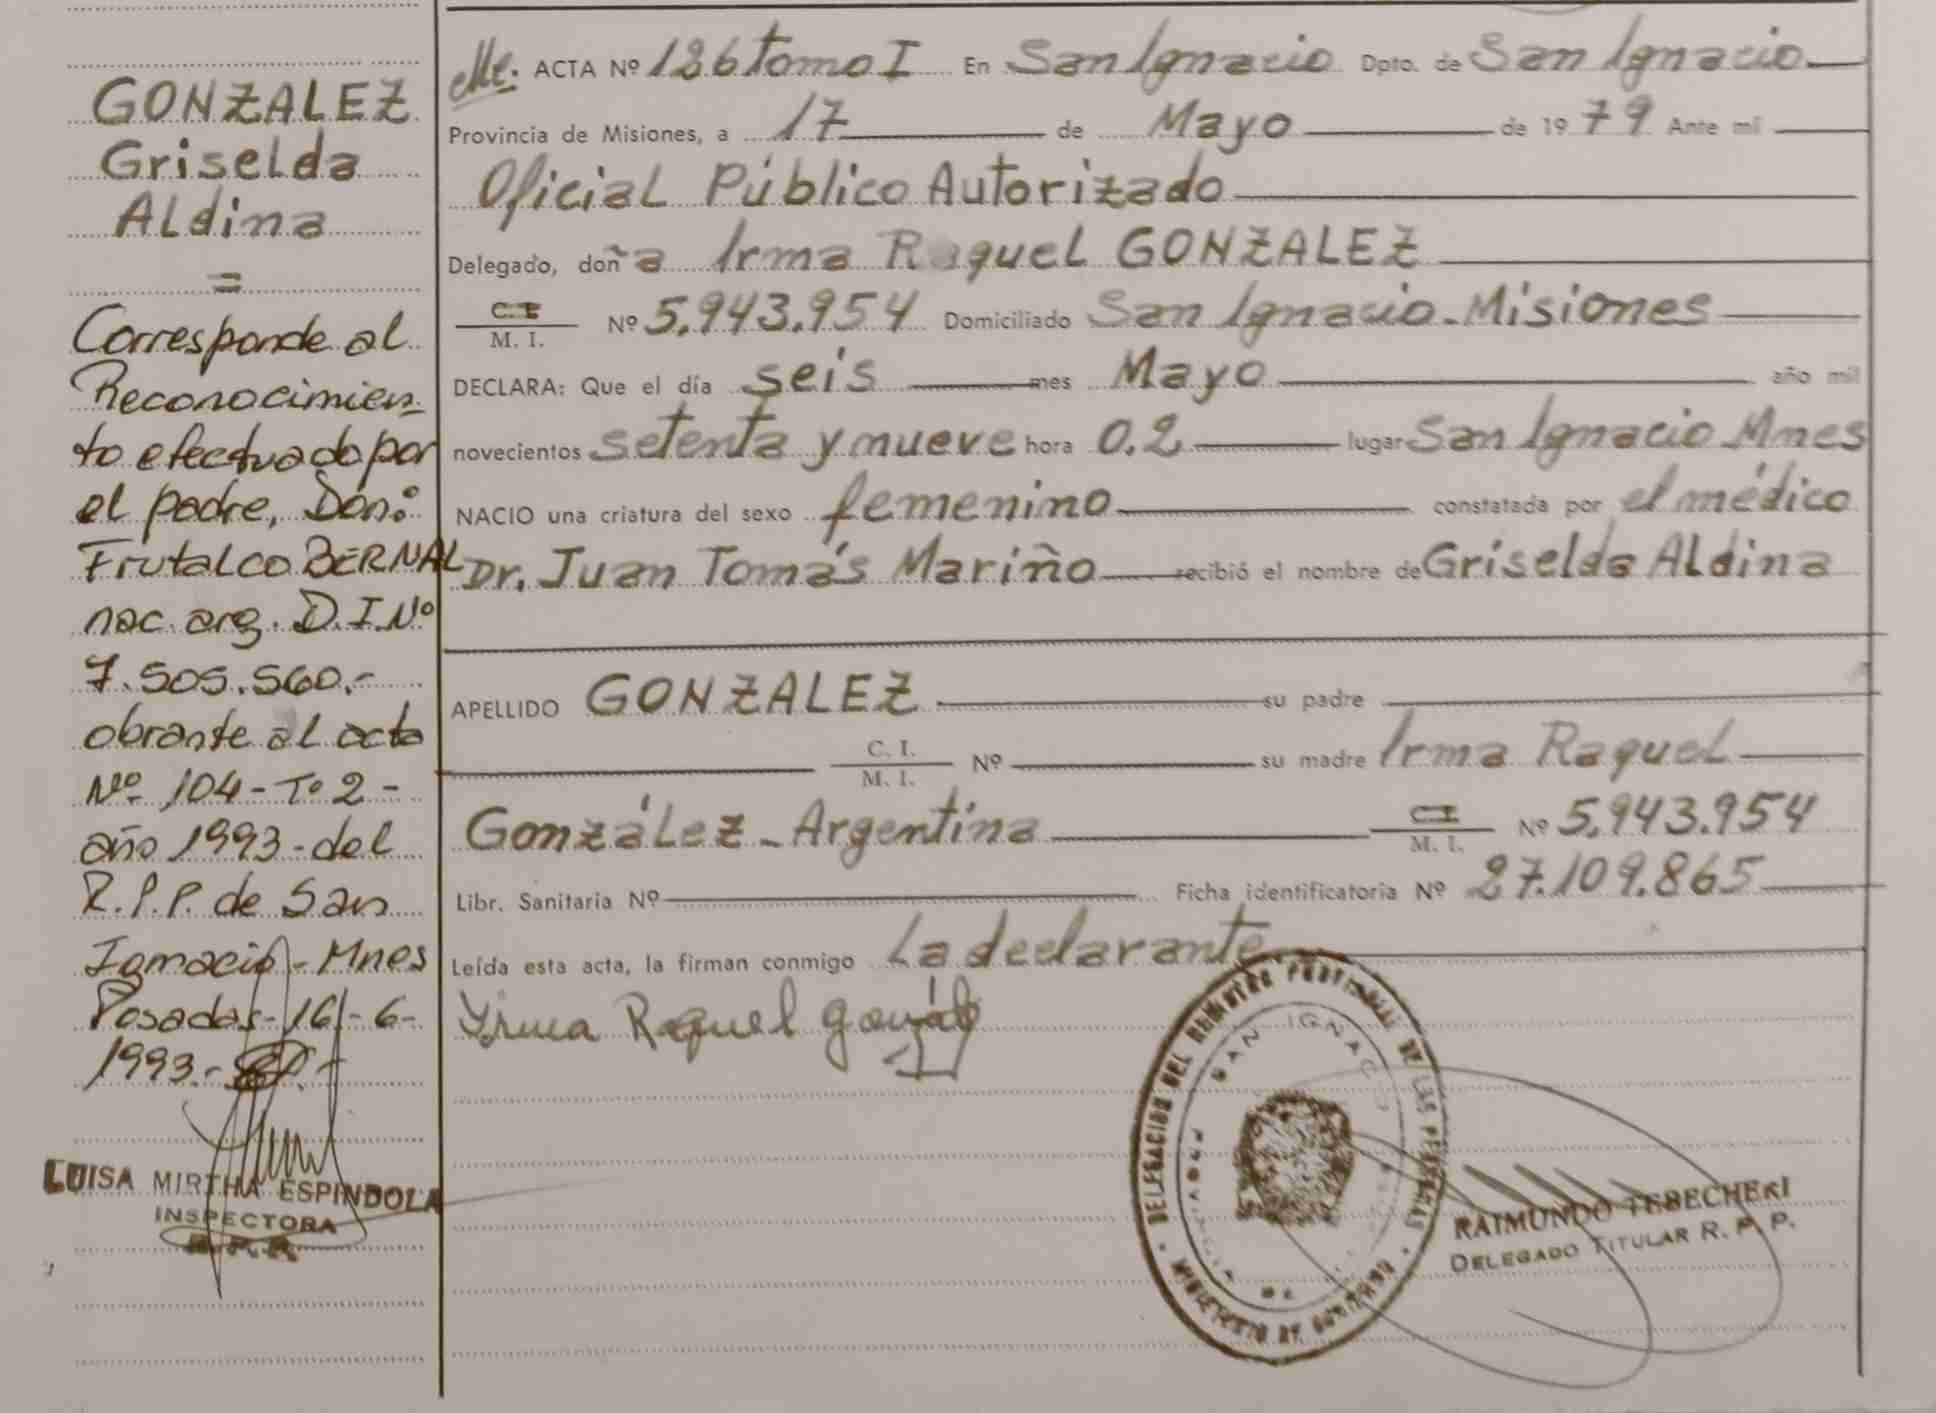 GONZALEZ
Griselda
Aldina
=
Corresponde al
Reconocimien-
to efectuado por
el padre, Don:
Frutalco BERNAL
nac. arg. D.I.Nº
7.505.560.-
obrante al acta
Nº 104 - Tº 2 -
año 1993 - del
R.P.P. de San
Ignacio - Mnes
Posadas - 16 - 6 -
1993.-
LUISA MIRTHA ESPINDOLA
INSPECTORA
ACTA Nº 126 tomo I En San Ignacio Dpto. de San Ignacio
Provincia de Misiones, a 17 de Mayo de 1979 Ante mi
Oficial Público Autorizado
Delegado, doña Irma Raquel GONZALEZ
C. I.
M. I. Nº 5.943.954 Domiciliado San Ignacio - Misiones
DECLARA: Que el día seis mes Mayo año mil
novecientos setenta y nueve hora 0.2 lugar San Ignacio Mnes
NACIO una criatura del sexo femenino constatada por el médico
Dr. Juan Tomás Mariño recibió el nombre de Griselda Aldina
APELLIDO GONZALEZ su padre
C. I.
M. I. Nº su madre Irma Raquel
González - Argentina C. I.
M. I. Nº 5.943.954
Libr. Sanitaria Nº Ficha identificatoria Nº 27.109.865
Leída esta acta, la firman conmigo La declarante
Irma Raquel González
DELEGACION DEL REGISTRO PROVINCIAL DE LAS PERSONAS
SAN IGNACIO
MINISTERIO DE GOBIERNO
RAIMUNDO TEBECHERI
DELEGADO TITULAR R. P. P.